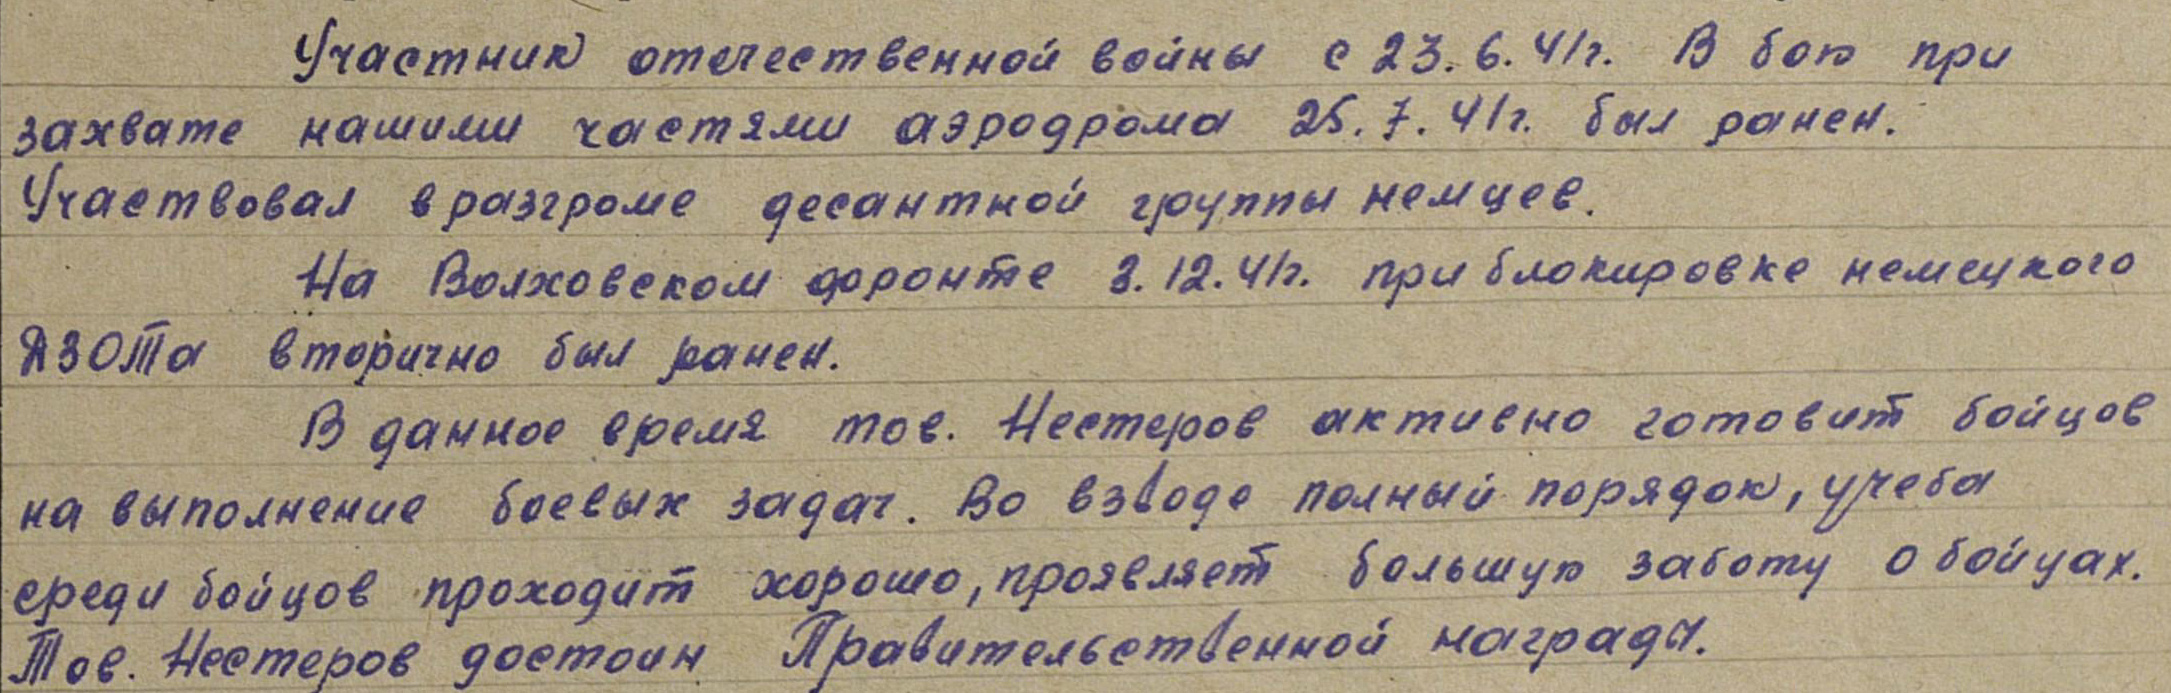 Участник отечественной войны с 23.6.41г. В бою при
захвате нашими частями аэродрома 25.7.41г. был ранен.
Участвовал в разгроме десантной группы немцев.
На Волховском фронте 3.12.41г. при блокировке немецкого
ДЗОТа вторично был ранен.
В данное время тов. Нестеров активно готовит бойцов
на выполнение боевых задач. Во взводе полный порядок, учеба
среди бойцов проходит хорошо, проявляет большую заботу о бойцах.
Тов. Нестеров достоин Правительственной награды.